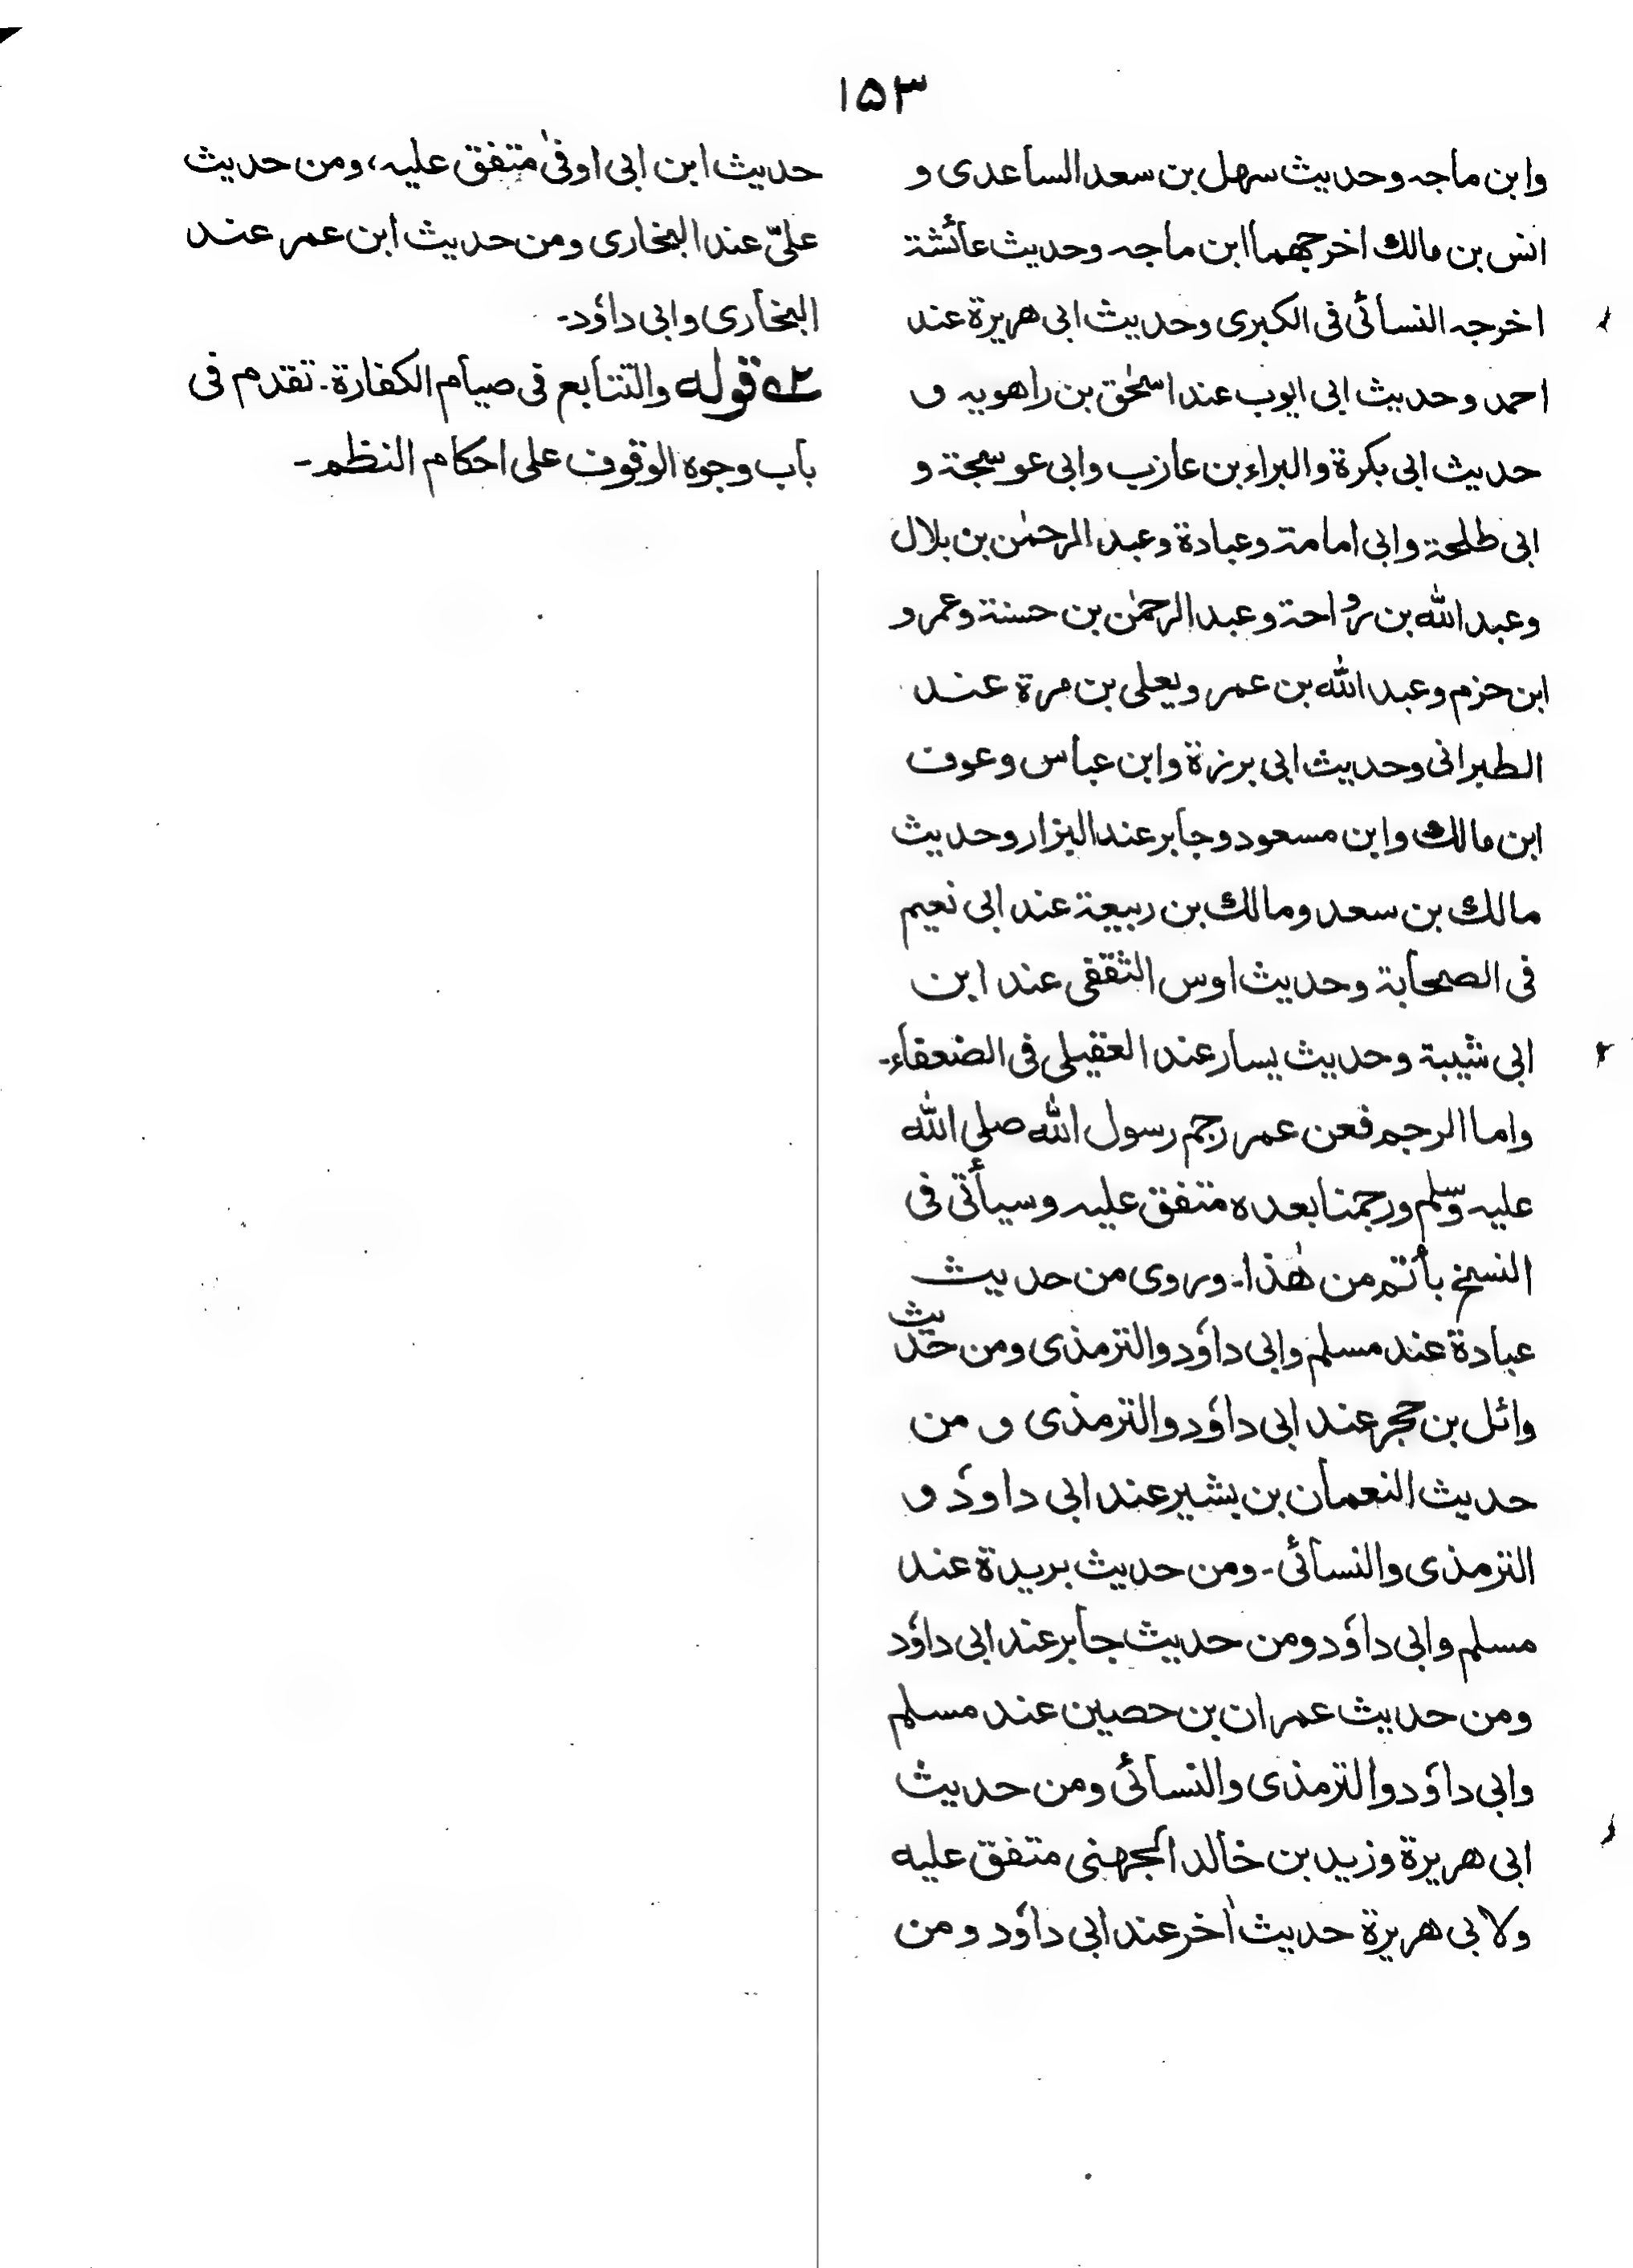 ١٥٣
وابن ماجہ وحديث سهل بن سعد الساعدى و
انس بن مالك اخرجهما ابن ماجہ وحديث عائشة
اخرجہ النسائى فى الكبرى وحديث ابى هريرة عند
احمد وحديث ابى ايوب عند اسحٰق بن راهويہ و
حديث ابى بكرة والبراء بن عازب وابى عوسجة و
ابى طلحة وابى امامة وعبادة وعبد الرحمٰن بن بلال
وعبد الله بن رواحة وعبد الرحمٰن بن حسنة وعمرو
ابن حزم وعبد الله بن عمر ويعلى بن مرة عند
الطبرانى وحديث ابى برزة وابن عباس وعوف
ابن مالك وابن مسعود وجابر عند البزار وحديث
مالك بن سعد ومالك بن ربيعة عند ابى نعيم
فى الصحابة وحديث اوس الثقفى عند ابن
ابى شيبة وحديث يسار عند العقيلى فى الضعفاء۔
واما الرجم فعن عمر رجم رسول الله صلى الله
عليہ وسلم ورجمنا بعده متفق عليہ وسيأتى فى
النسخ بأتم من هٰذا۔ وروى من حديث
عبادة عند مسلم وابى داؤد والترمذى ومن حديث
وائل بن حجر عند ابى داؤد والترمذى و من
حديث النعمان بن بشير عند ابى داؤد و
الترمذى والنسائى۔ ومن حديث بريدة عند
مسلم وابى داؤد ومن حديث جابر عند ابى داؤد
ومن حديث عمران بن حصين عند مسلم
وابى داؤد والترمذى والنسائى ومن حديث
ابى هريرة وزيد بن خالد الجهنى متفق عليه
ولابى هريرة حديث اٰخر عند ابى داؤد ومن
حديث ابن ابى اوفىٰ متفق عليہ، ومن حديث
علىّ عند البخارى ومن حديث ابن عمر عند
البخارى وابى داؤد۔
٢ـه قوله والتتابع فى صيام الكفارة۔ تقدم فى
باب وجوه الوقوف على احكام النظم۔